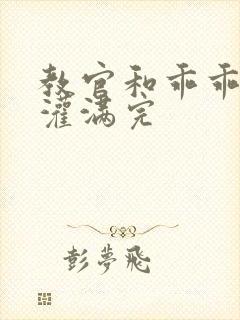 教官和乖乖
灌满完
彭夢飛